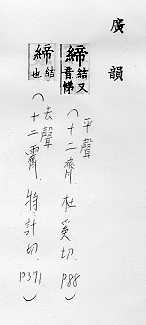 廣韻
締 結又音悌
（平聲
十二齊．杜奚切．P88）
締 結也
（去聲
十二霽．特計切．P371）